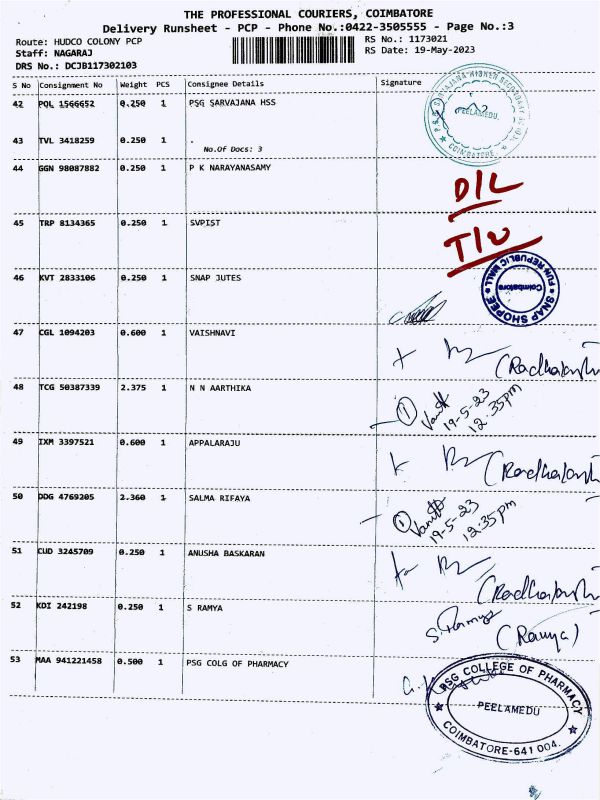 THE PROFESSIONAL COURIERS, COIMBATORE
Delivery Runsheet - PCP - Phone No.:0422-3505555 - Page No.:3
Route: HUDCO COLONY PCP
RS No.: 1173021
Staff: NAGARAJ
RS Date: 19-May-2023
DRS No.: DCJB117302103
S No Consignment No Weight PCS Consignee Details Signature
42 PQL 1566652 0.250 1 PSG SARVAJANA HSS
PEELAMEDU.
COIMBATORE
43 TVL 3418259 0.250 1 .
No.Of Docs: 3
44 GGN 98087882 0.250 1 P K NARAYANASAMY
D/L
45 TRP 8134365 0.250 1 SVPIST
46 KVT 2833106 0.250 1 SNAP JUTES
SNAP SHOPEE
FUN REPUBLIC MALL
Coimbatore
47 CGL 1094203 0.600 1 VAISHNAVI
48 TCG 50387339 2.375 1 N N AARTHIKA
1
19-5-23
12.35pm
49 IXM 3397521 0.600 1 APPALARAJU
50 DDG 4769205 2.360 1 SALMA RIFAYA
1
19-5-23
12:35pm
51 CUD 3245709 0.250 1 ANUSHA BASKARAN
52 KDI 242198 0.250 1 S RAMYA
S. Ramya
(Ramya)
53 MAA 941221458 0.500 1 PSG COLG OF PHARMACY
PSG COLLEGE OF PHARMACY
PEELAMEDU
COIMBATORE-641 004.